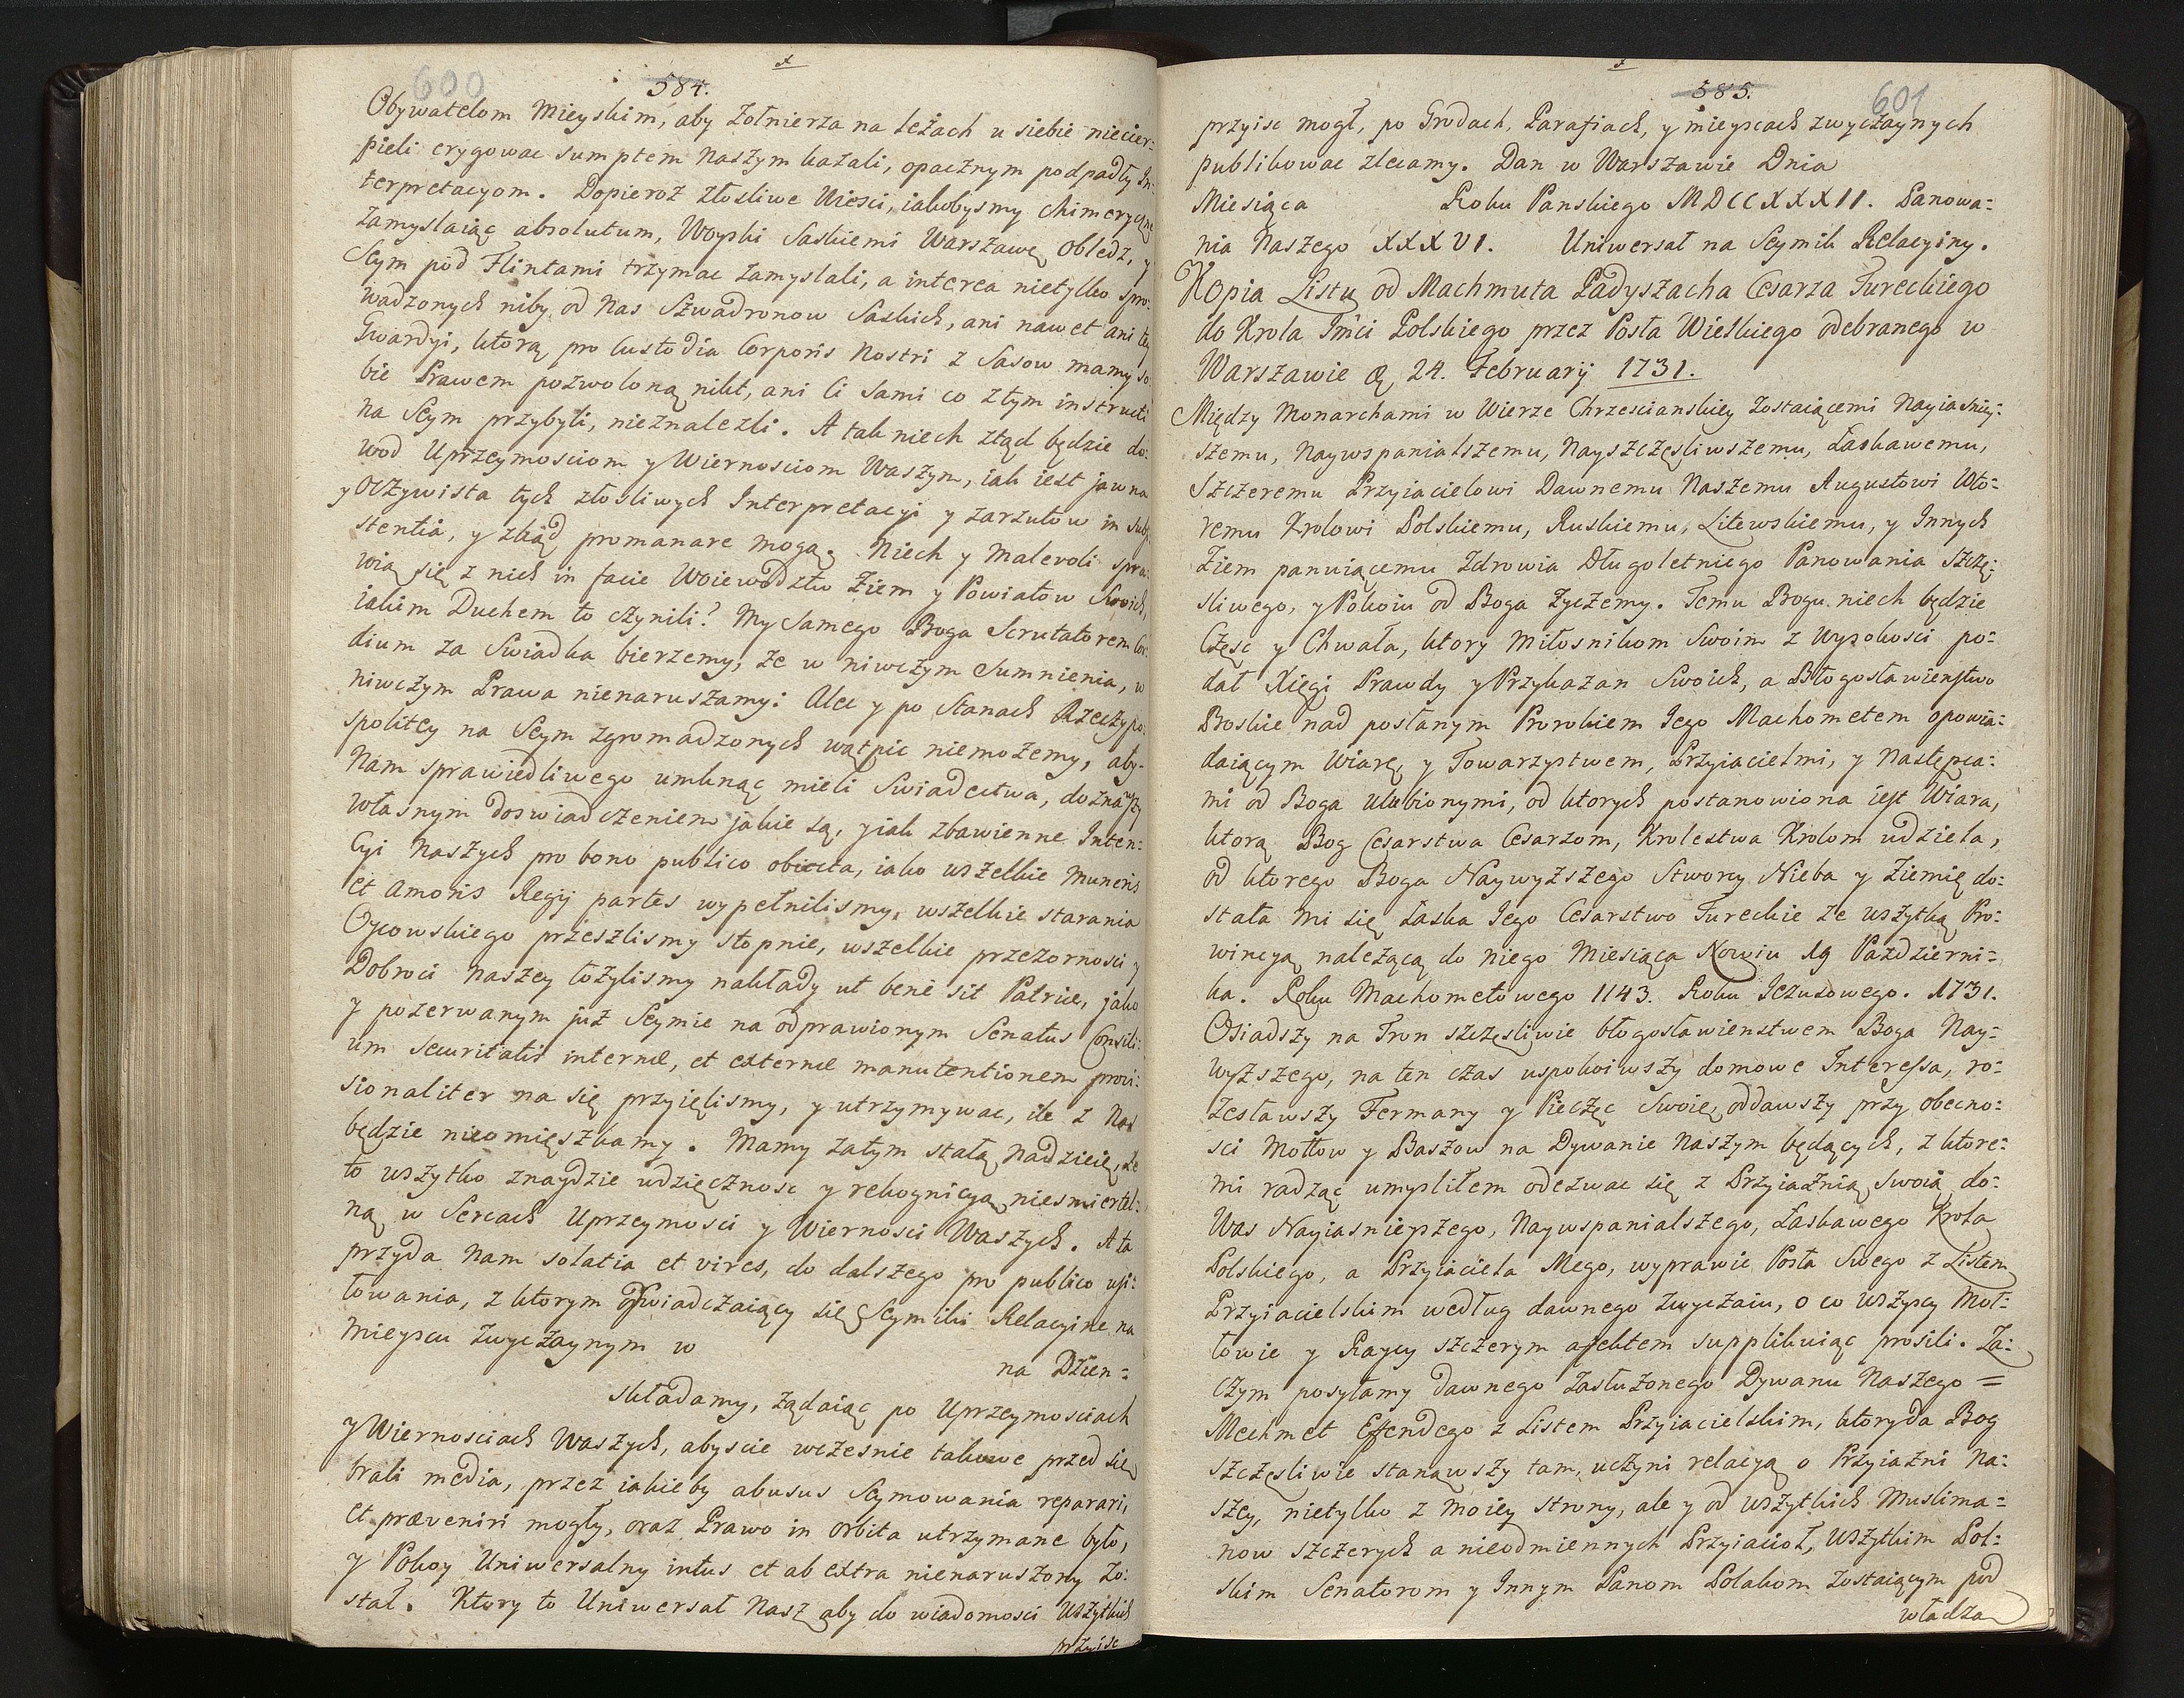 600
584.
Obywatelom Mieyskim, aby Żołnierza na leżach u siebie niecier:
pieli erygowac sumptem Naszym kazali, opacznym podpadły In:
terpretacyom. Dopieroż złosliwe Wiesci, iakobysmy chimeryczne
zamyslaiąc absolutum, Woyski Saskiemi Warszawę obledz, y
Seym pod Flintami trzymac zamyslali, a interea nietylko spro:
wadzonych niby od Nas Szwadronow Saskich, ani nawet ani tey
Gwardyi, ktorą pro Custodia Corporis Nostri z Sasow mamy so:
bie Prawem pozwoloną nikt, ani Ci sami co złym instructi
na Seym przybyli, nieznalezli. A tak niech ztąd będzie do:
wod Uprzeymosciom y Wiernosciom Waszym, iak iest jawna
y Oczywista tych złosliwych Interpretacyi y zarzutow in sub:
stentia, y zkąd promanare mogą. Niech y Malevoli spra:
wią się z nich in facie Woiewodztw Ziem y Powiatow Swoich,
iakim Duchem to czynili? My Samego Boga Scrutatorem Cor:
dium za Swiadka bierzemy, że w niwczym Sumnienia, w
niwczym Prawa nienaruszamy: Ale y po Stanach Rzeczypo:
spolitey na Seym zgromadzonych wątpic niemożemy, aby:
Nam sprawiedliwego umknąc mieli Swiadectwa, doznawszy
własnym doswiadczeniem jakie są, y iak zbawienne Inten:
cyi Naszych pro bono publico obiecta, iako wszelkie Muneris
et Amoris Regij partes wypełnilismy, wszelkie starania
Oycowskiego przeszlismy stopnie, wszelkie przezornosci y
Dobroci Naszey łożylismy nakłady ut bene sit Patriæ, jako
y po zerwanym już Seymie na odprawionym Senatus Consili:
um securitatis internæ, et externæ manutentionem provi:
sionaliter na się przyięlismy, y utrzymywac, ile z Nas
będzie nieomięszkamy. Mamy zatym stałą nadzieię, że
to wszytko znaydzie udzięcznosc y rekognicyą niesmiertel:
ną w Sercach Uprzeymosci y Wiernosci Waszych. A ta
przyda Nam solatia et vires, do dalszego pro publico usi:
łowania, z ktorym oswiadczaiący się Seymiki Relacyine na
mieyscu zwyczaynym w
na Dzien =
składamy, żądaiąc po Uprzeymosciach
y Wiernosciach Waszych, abyscie wczesnie takowe przed się
brali media, przez iakieby abusus Seymowania reparari,
et præveniri mogły, oraz Prawo in orbita utrzymane było,
y Pokoy Uniwersalny intus et ab extra nienaruszony zo:
stał. Ktory to Uniwersał Nasz aby do wiadomosci wszytkich
przyisc
585.
601
przyisc mogł, po Grodach, Parafiach, y mieyscach zwyczaynych
publikowac zlecamy. Dan w Warszawie Dnia
Miesiąca Roku Panskiego MDCCXXXII. Panowa:
nia Naszego XXXVI. Uniwersał na Seymik Relacyiny.
Kopia Listu od Machmuta Padyszacha Cesarza Tureckiego
do Krola Jmci Polskiego przez Posła Wielkiego odebranego w
Warszawie D. 24. February 1731.
Między Monarchami w Wierze Chrzescianskiey zostaiącemi Nayiasniey:
szemu, Naywspanialszemu, Nayszczęsliwszemu, Łaskawemu,
Szczeremu Przyiacielowi Dawnemu Naszemu Augustowi Wto:
remu Krolowi Polskiemu, Ruskiemu, Litewskiemu, y Innych
Ziem panuiącemu Zdrowia Długoletniego Panowania szczę:
sliwego, y Pokoiu od Boga życzemy. Temu Bogu niech będzie
Częsc y Chwała, ktory Miłosnikom Swoim z wysokosci po:
dał Xięgi Prawdy y Przykazan Swoich, a Błogosławienstwo
Boskie nad posłanym Prorokiem Jego Machometem opowia:
daiącym Wiarę y Towarzystwem, Przyiacielmi, y Następca:
mi od Boga ulubionymi, od ktorych postanowiona iest Wiara,
ktorą Bog Cesarstwa Cesarzom, Krolestwa Krolom udziela,
od ktorego Boga Naywyższego Stworcy Nieba y Ziemię do:
stała mi się Łaska Jego Cesarstwo Tureckie ze wszytką Pro:
wincyą należącą do niego Miesiąca Nowiu 19 Pazdzierni:
ka. Roku Machometowego 1143. Roku Jezusowego. 1731.
Osiadszy na Tron szczęsliwie błogosławienstwem Boga Nay:
wyższego, na ten czas uspokoiwszy domowe Interessa, ro:
zesławszy Fermany y Pieczęc Swoię oddawszy przy obecno:
sci Mołłow y Baszow na Dywanie Naszym będących, z ktore:
mi radząc umysliłem odezwac się z Przyiaźnią swoią do:
Was Nayiasnieyszego, Naywspanialszego, Łaskawego Krola
Polskiego, a Przyiaciela Mego, wyprawic Posła Swego z Listem
Przyiacielskim według dawnego zwyczaiu, o co wszyscy Moł:
łowie y Raycy szczerym afektem supplikuiąc prosili. Za:
czym posyłamy dawnego zasłużonego Dywanu Naszego =
Mechmet Effendego z Listem Przyiacielskim, ktory da Bog
szczęsliwie stanąwszy tam, uczyni relacyą o Przyiazni Na:
szey, nietylko z moiey strony, ale y od wszytkich Muslima:
now szczerych a nieodmiennych Przyiacioł, wszytkim Pol:
skim Senatorom y Innym Panom Polakom zostaiącym pod
władzą